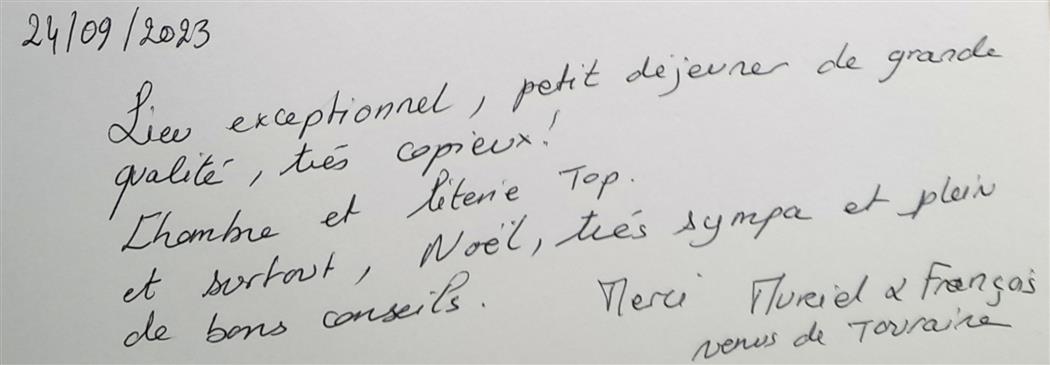 24/09/2023
Lieu exceptionnel, petit déjeuner de grande
qualité, trés copieux!
Chambre et literie Top.
et surtout, Noël, trés sympa et plein
de bons conseils.
Merci Muriel & François
venus de Touraine